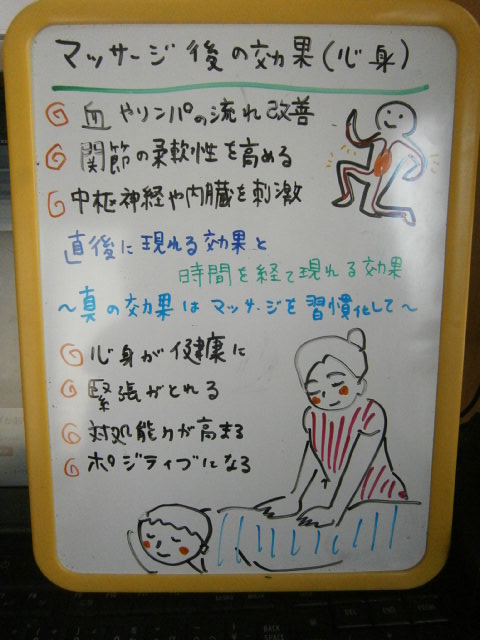 マッサージ後の効果(心身)
血やリンパの流れ改善
関節の柔軟性を高める
中枢神経や内臓を刺激
直後に現れる効果と
時間を経て現れる効果
～真の効果はマッサージを習慣化して～
心身が健康に
緊張がとれる
対処能力が高まる
ポジティブになる
BACK
SPACE